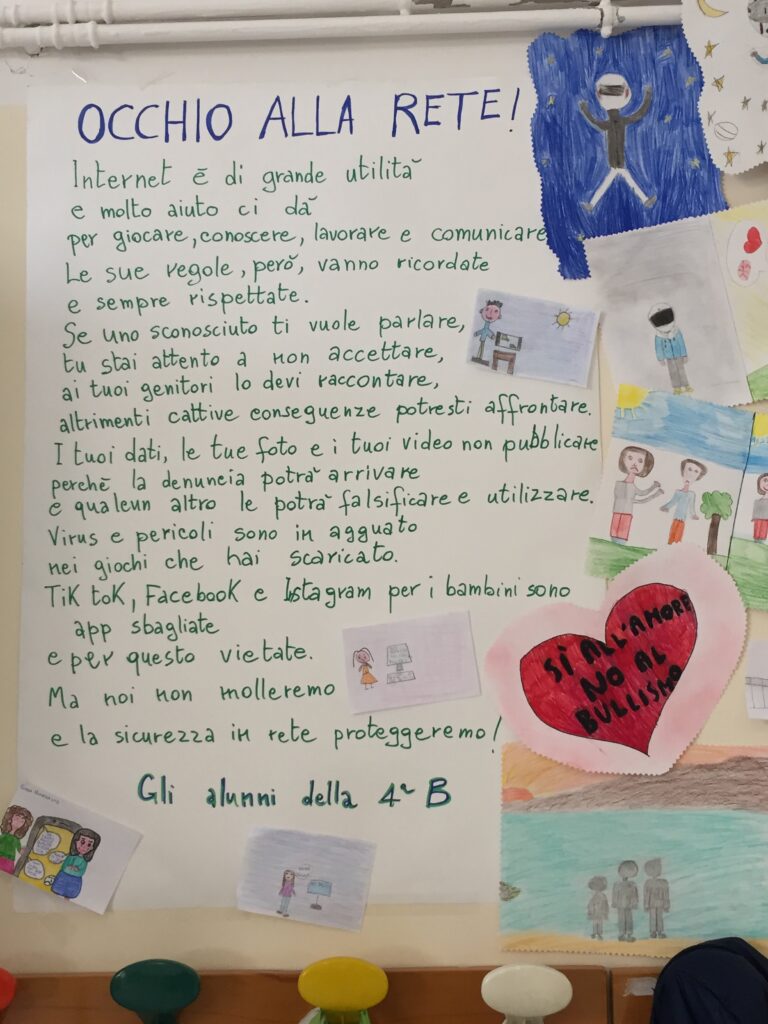 OCCHIO ALLA RETE!
Internet ē di grande utilitā
e molto aiuto ci dā
per giocare, conoscere, lavorare e comunicare
Le sue regole, però, vanno ricordate
e sempre rispettate.
Se uno sconosciuto ti vuole parlare,
tu stai attento a non accettare,
ai tuoi genitori lo devi raccontare,
altrimenti cattive conseguenze potresti affrontare.
I tuoi dati, le tue foto e i tuoi video non pubblicare
perchē la denuncia potrā arrivare
e qualcun altro le potrā falsificare e utilizzare.
Virus e pericoli sono in agguato
nei giochi che hai scaricato.
TiK toK, FacebooK e Istagram per i bambini sono
app sbagliate
e per questo vietate.
Ma noi non molleremo
e la sicurezza in rete proteggeremo!
Gli alunni della 4ª B
SÌ ALL'AMORE
NO AL
BULLISMO